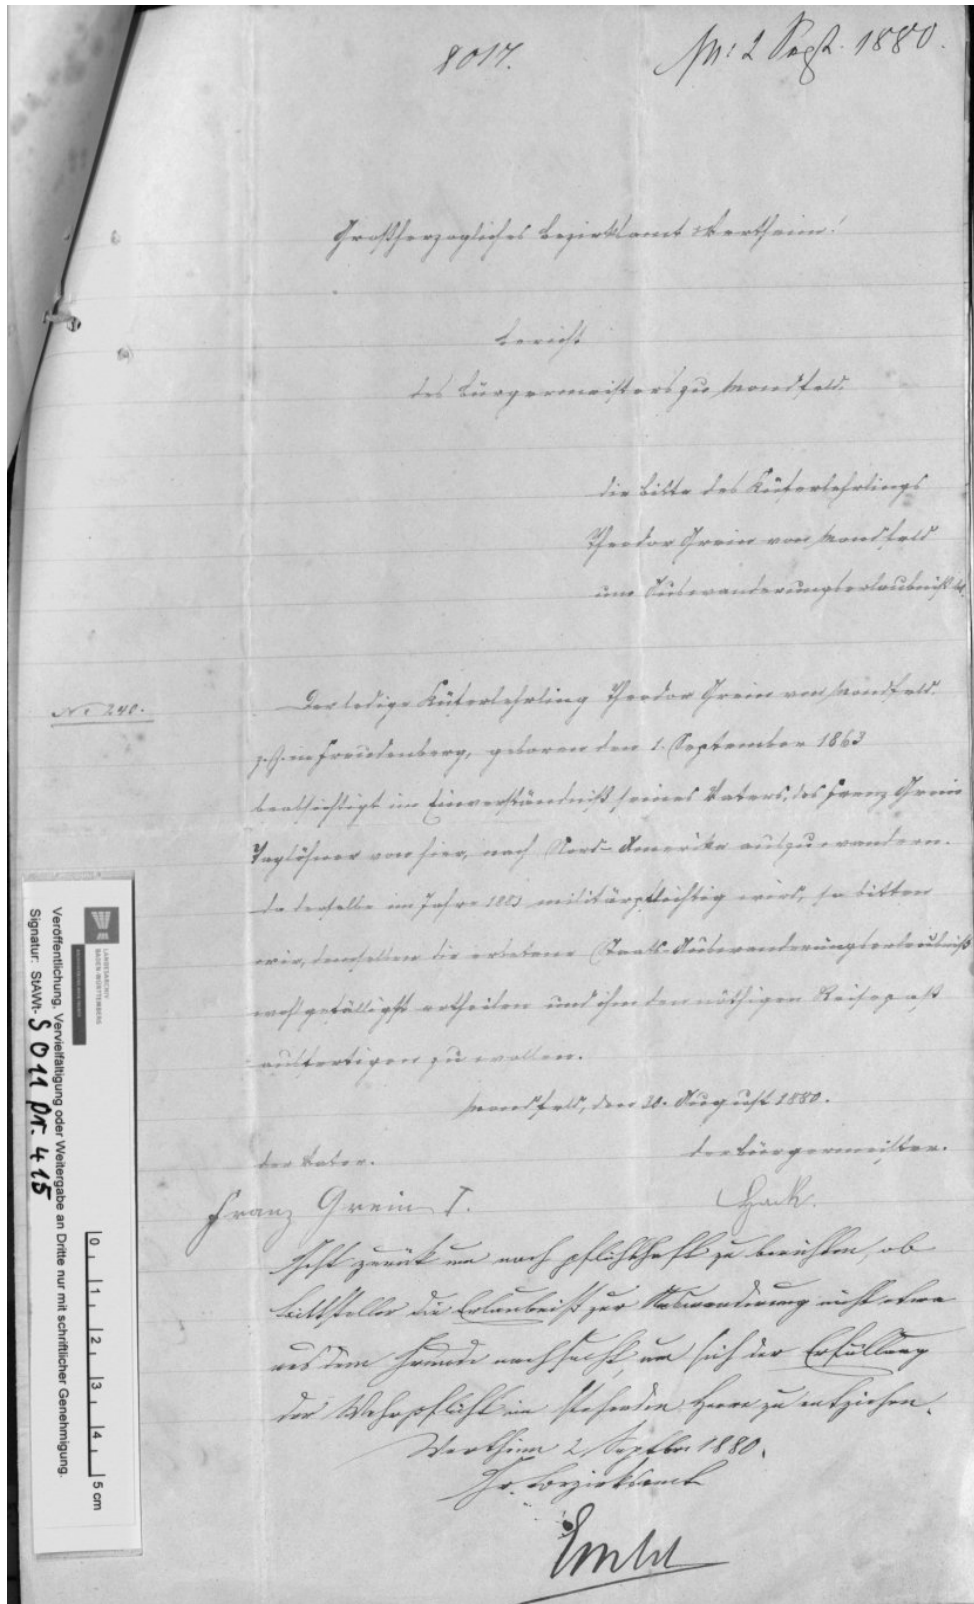 8017.
2 Sept. 1880.
Großherzogliches Bezirksamt Wertheim!
Bericht
des Bürgermeisters zu Mondfeld.
die Bitte des Küferlehrlings
Theodor Grein von Mondfeld
um Auswanderungserlaubniß btr.
Nr 240.
Der ledige Küferlehrling Theodor Grein von Mondfeld
z. Z. in Freudenberg, geboren den 1. September 1863
beabsichtigt im Einverständniß seines Vaters, des Franz Grein
Taglöhner von hier, nach Nord-Amerika auszuwandern.
Da derselbe im Jahre 1883 militärpflichtig wird, so bitten
wir, demselben die erbetene Staats-Auswanderungserlaubniß
wohlgefälligst ertheilen und ihm den nöthigen Reisepaß
ausfertigen zu wollen.
Mondfeld, den 30. August 1880.
der Vater.
der Bürgermeister.
Franz Grein I.
Hack.
Geht zurück um noch pflichthaft zu berichten, ob
Bittsteller die Erlaubniß zur Auswanderung nicht etwa
aus dem Grunde nachsucht, um sich der Erfüllung
der Wehrpflicht im stehenden Heere zu entziehen.
Wertheim 2 Septbr 1880.
Gr. Bezirksamt
LANDESARCHIV
BADEN-WÜRTTEMBERG
Veröffentlichung, Vervielfältigung oder Weitergabe an Dritte nur mit schriftlicher Genehmigung.
Signatur: StAWt- S 011 Nr. 415
0 1 2 3 4 5 cm